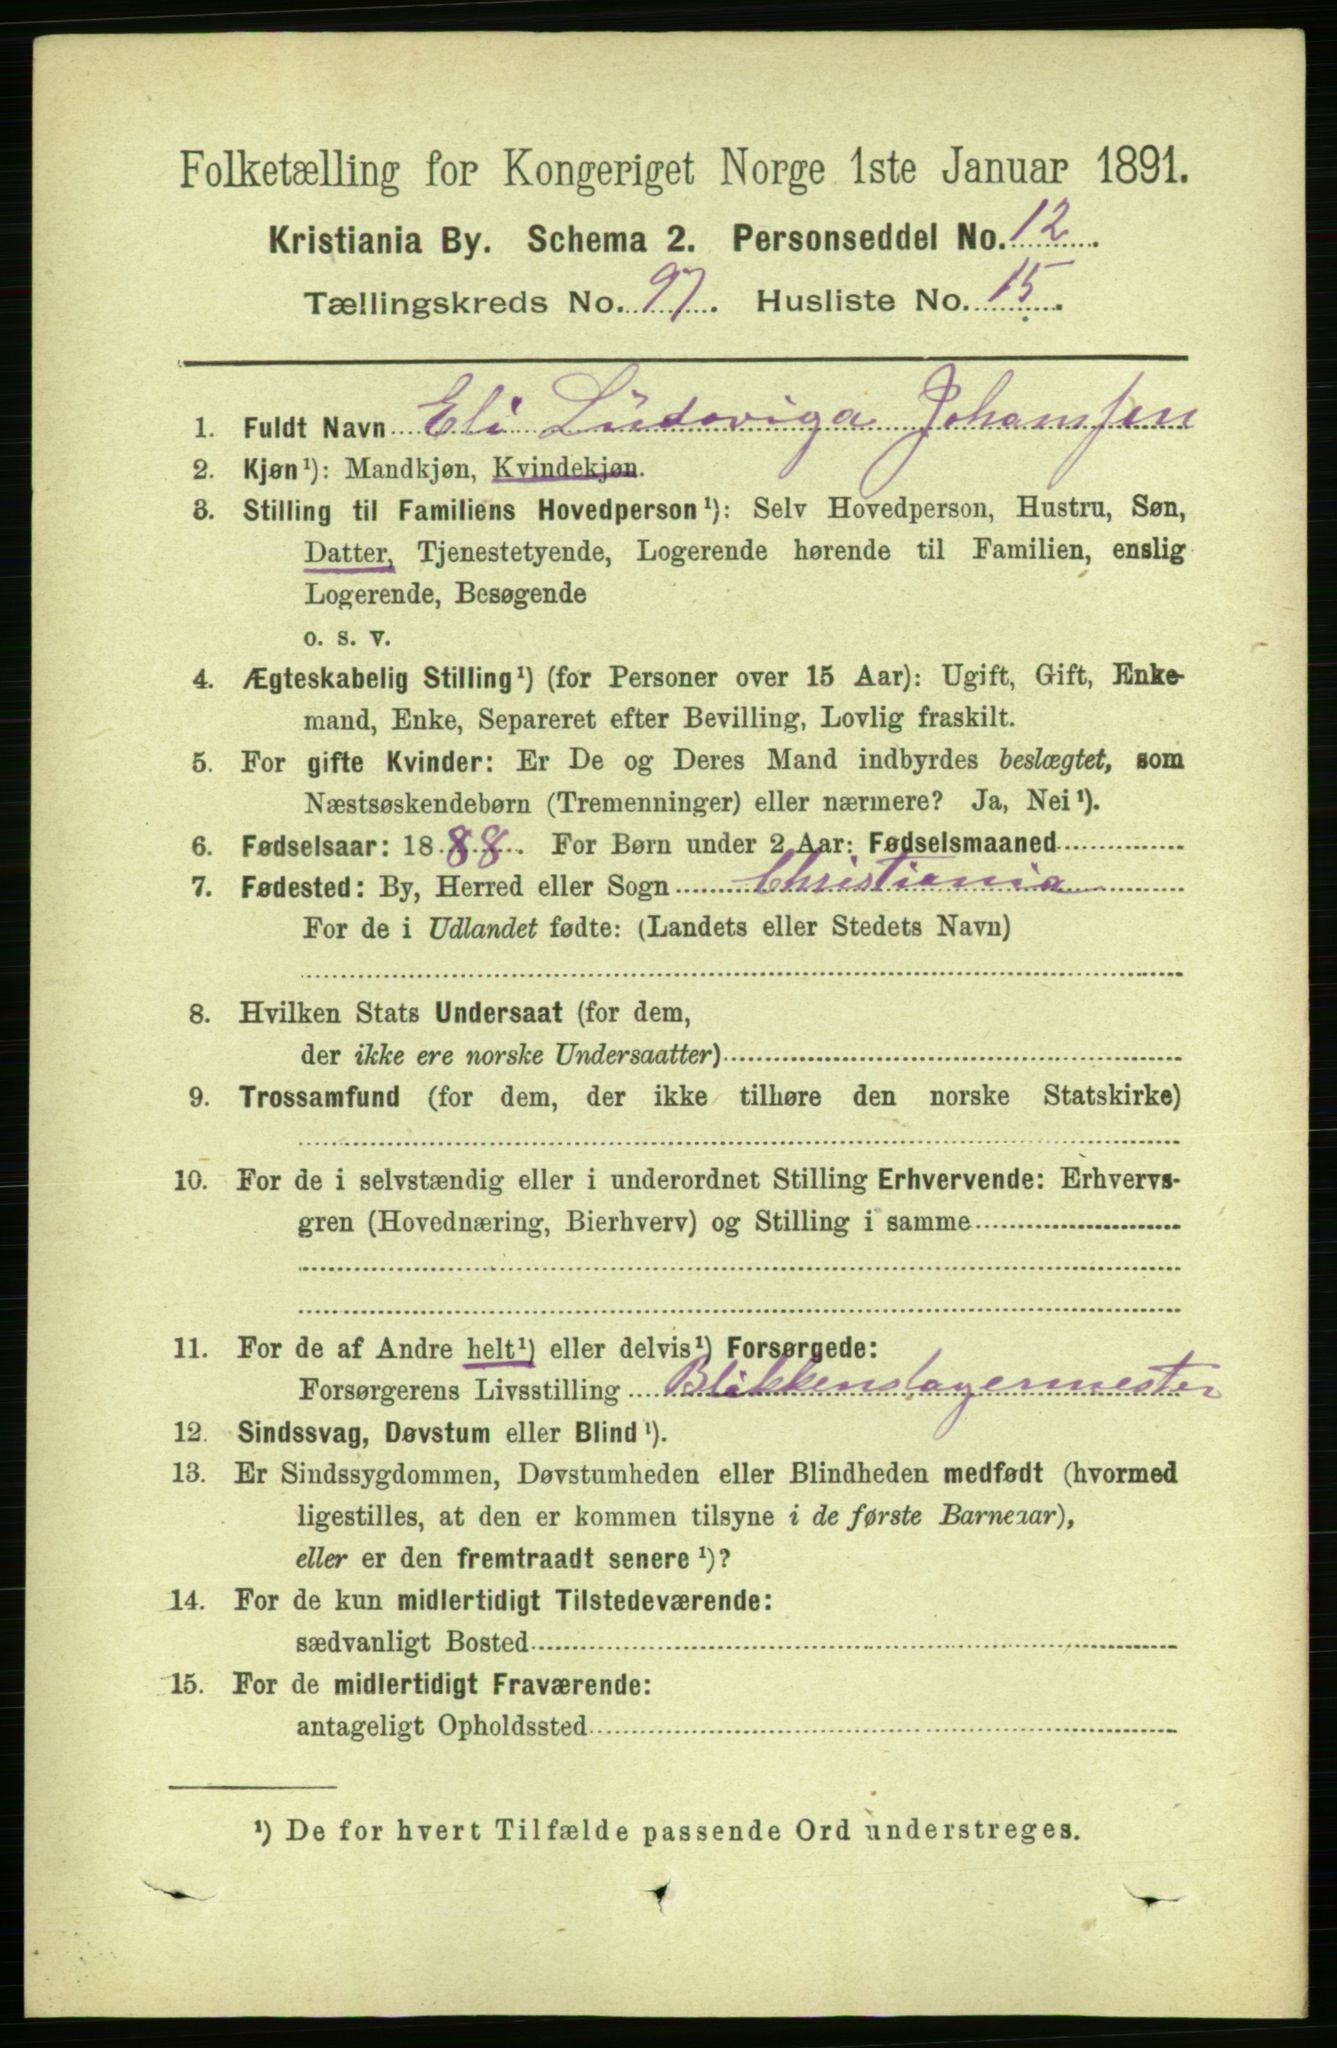 Folketælling for Kongeriget Norge 1ste Januar 1891.
Kristiania By. Schema 2. Personseddel No. 12.
Tællingskreds No. 97. Husliste No. 15.
1. Fuldt Navn Eli Ludoviga Johansen
2. Kjøn¹): Mandkjøn, Kvindekjøn.
3. Stilling til Familiens Hovedperson¹): Selv Hovedperson, Hustru, Søn,
Datter, Tjenestetyende, Logerende hørende til Familien, enslig
Logerende, Besøgende
o. s. v.
4. Ægteskabelig Stilling¹) (for Personer over 15 Aar): Ugift, Gift, Enke-
mand, Enke, Separeret efter Bevilling, Lovlig fraskilt.
5. For gifte Kvinder: Er De og Deres Mand indbyrdes beslægtet, som
Næstsøskendebørn (Tremenninger) eller nærmere? Ja, Nei¹).
6. Fødselsaar: 1888. For Børn under 2 Aar: Fødselsmaaned
7. Fødested: By, Herred eller Sogn Christiania
For de i Udlandet fødte: (Landets eller Stedets Navn)
8. Hvilken Stats Undersaat (for dem,
der ikke ere norske Undersaatter)
9. Trossamfund (for dem, der ikke tilhøre den norske Statskirke)
10. For de i selvstændig eller i underordnet Stilling Erhvervende: Erhvervs-
gren (Hovednæring, Bierhverv) og Stilling i samme
11. For de af Andre helt¹) eller delvis¹) Forsørgede:
Forsørgerens Livsstilling Blikkenslagermester
12. Sindssvag, Døvstum eller Blind¹).
13. Er Sindssygdommen, Døvstumheden eller Blindheden medfødt (hvormed
ligestilles, at den er kommen tilsyne i de første Barneaar),
eller er den fremtraadt senere¹)?
14. For de kun midlertidigt Tilstedeværende:
sædvanligt Bosted
15. For de midlertidigt Fraværende:
antageligt Opholdssted
¹) De for hvert Tilfælde passende Ord understreges.